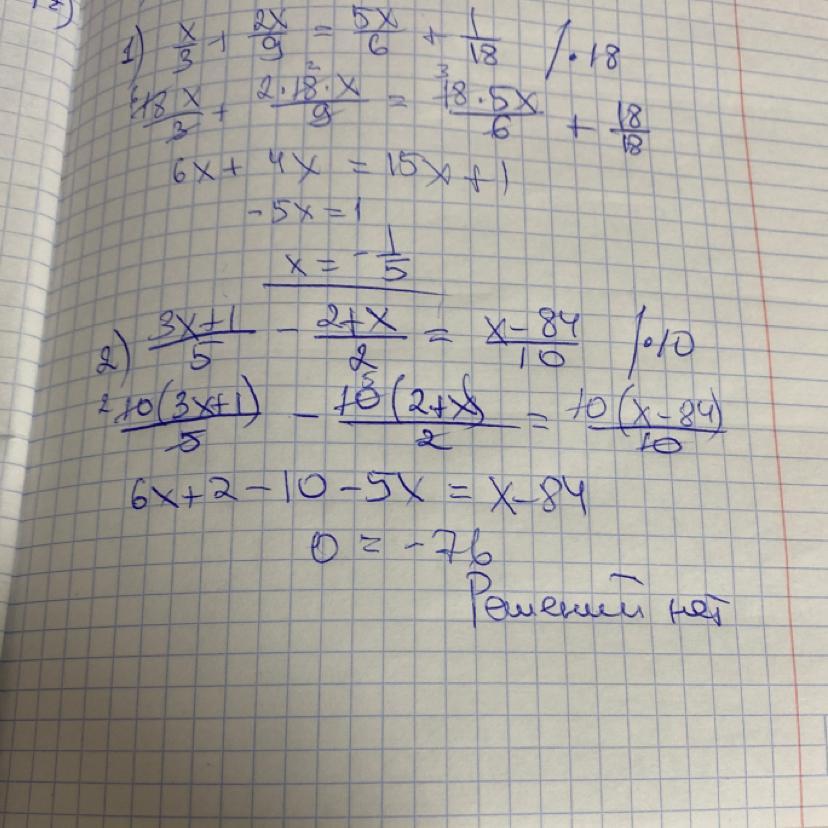 1) x/3 + 2x/9 = 5x/6 + 1/18 /·18
6 18x/3 + 2·18²·x/9 = 18³·5x/6 + 18/18
6x + 4x = 15x + 1
-5x = 1
x = -1/5
2) 3x+1/5 - 2+x/2 = x-84/10 /·10
2 10(3x+1)/5 - 10 5(2+x)/2 = 10(x-84)/10
6x+2-10-5x = x-84
0 = -76
Решений нет